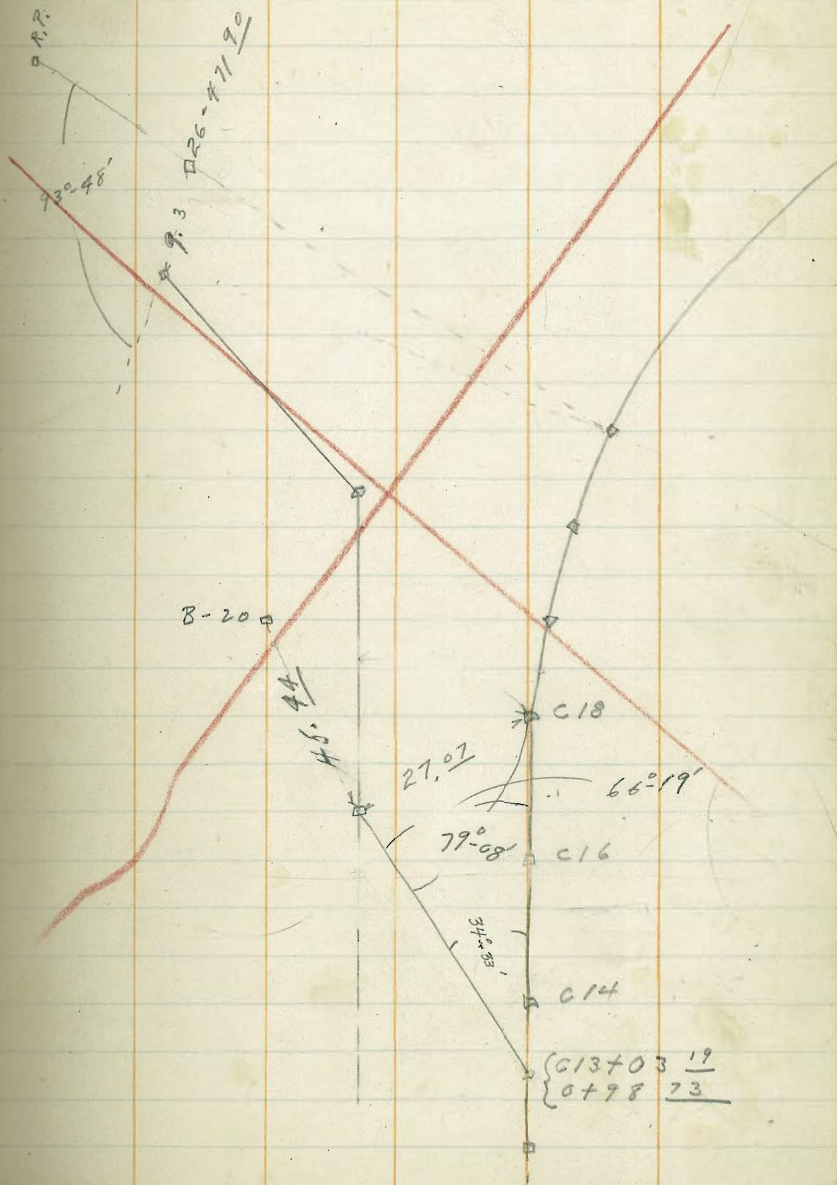 R.P.
26-471 90
93°-48'
9.3
B-20
45.44
C18
27.07
66°-19'
79°-08'
C16
34°-33'
C14
C13+03 19
0+98 73